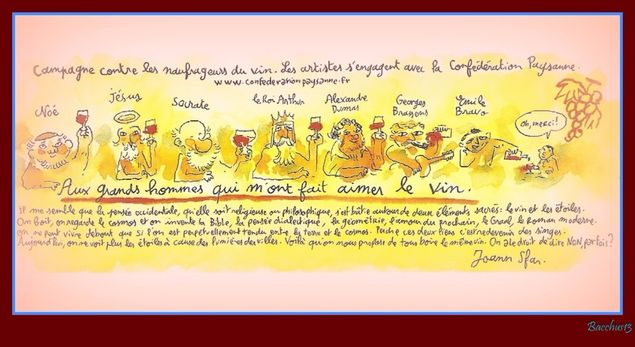 Campagne contre les naufrageurs du vin. Les artistes s'engagent avec la Confédération Paysanne.
www.confederationpaysanne.fr
Noé
Jésus
Socrate
le Roi Arthur
Alexandre Dumas
Georges Brassens
Emile Bravo
Oh, merci!
Aux grands hommes qui m'ont fait aimer le vin.
Il me semble que la pensée occidentale, qu'elle soit religieuse ou philosophique, s'est bâtie autour de deux éléments sacrés: le vin et les étoiles.
On Boit, on regarde le cosmos et on invente la Bible, la pensée dialectique, la géométrie, l'amour du prochain, le Graal, le Roman moderne.
On ne peut vivre debout que si l'on est perpétuellement tendu entre la terre et le cosmos. Perdre ces deux liens c'est redevenir des singes.
Aujourd'hui, on ne voit plus les étoiles à cause des lumières des villes. Voilà qu'on nous propose de tous boire le même vin. On a le droit de dire NON, parfois?
Joann Sfar.
Bacchus13